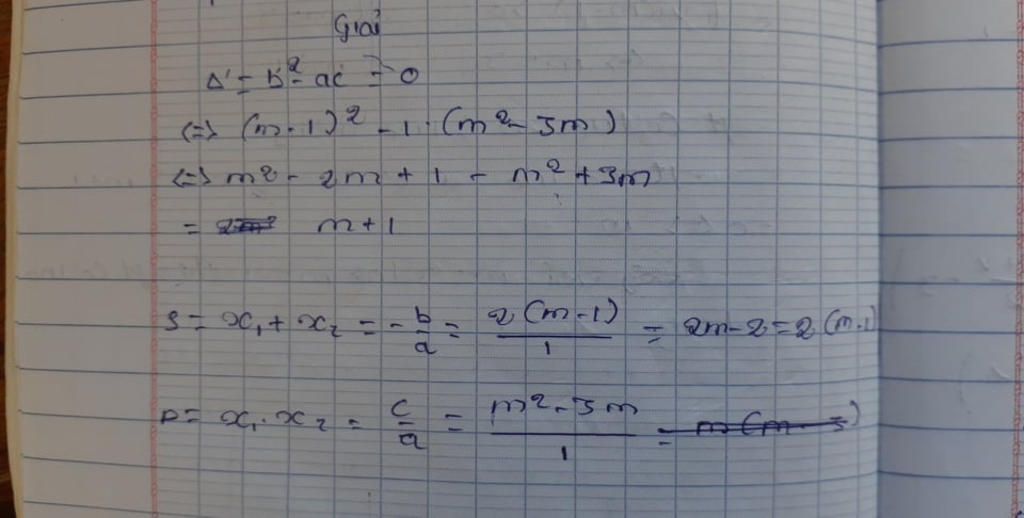 Giải
Δ' = b'² - ac = 0
<=> (m-1)² - 1.(m² - 3m)
<=> m² - 2m + 1 - m² + 3m
= m+1
S = x₁ + x₂ = -b/a = 2(m-1)/1 = 2m-2 = 2(m-1)
P = x₁.x₂ = c/a = m²-3m/1 = m(m-3)